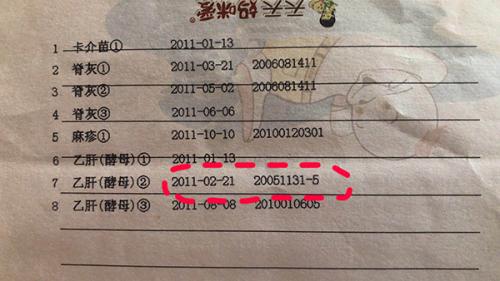 天天妈咪爱
1 卡介苗① 2011-01-13
2 脊灰① 2011-03-21 2006081411
3 脊灰② 2011-05-02 2006081411
4 脊灰③ 2011-06-06
5 麻疹① 2011-10-10 20100120301
6 乙肝(酵母)① 2011-01-13
7 乙肝(酵母)② 2011-02-21 20051131-5
8 乙肝(酵母)③ 2011-08-08 2010010605